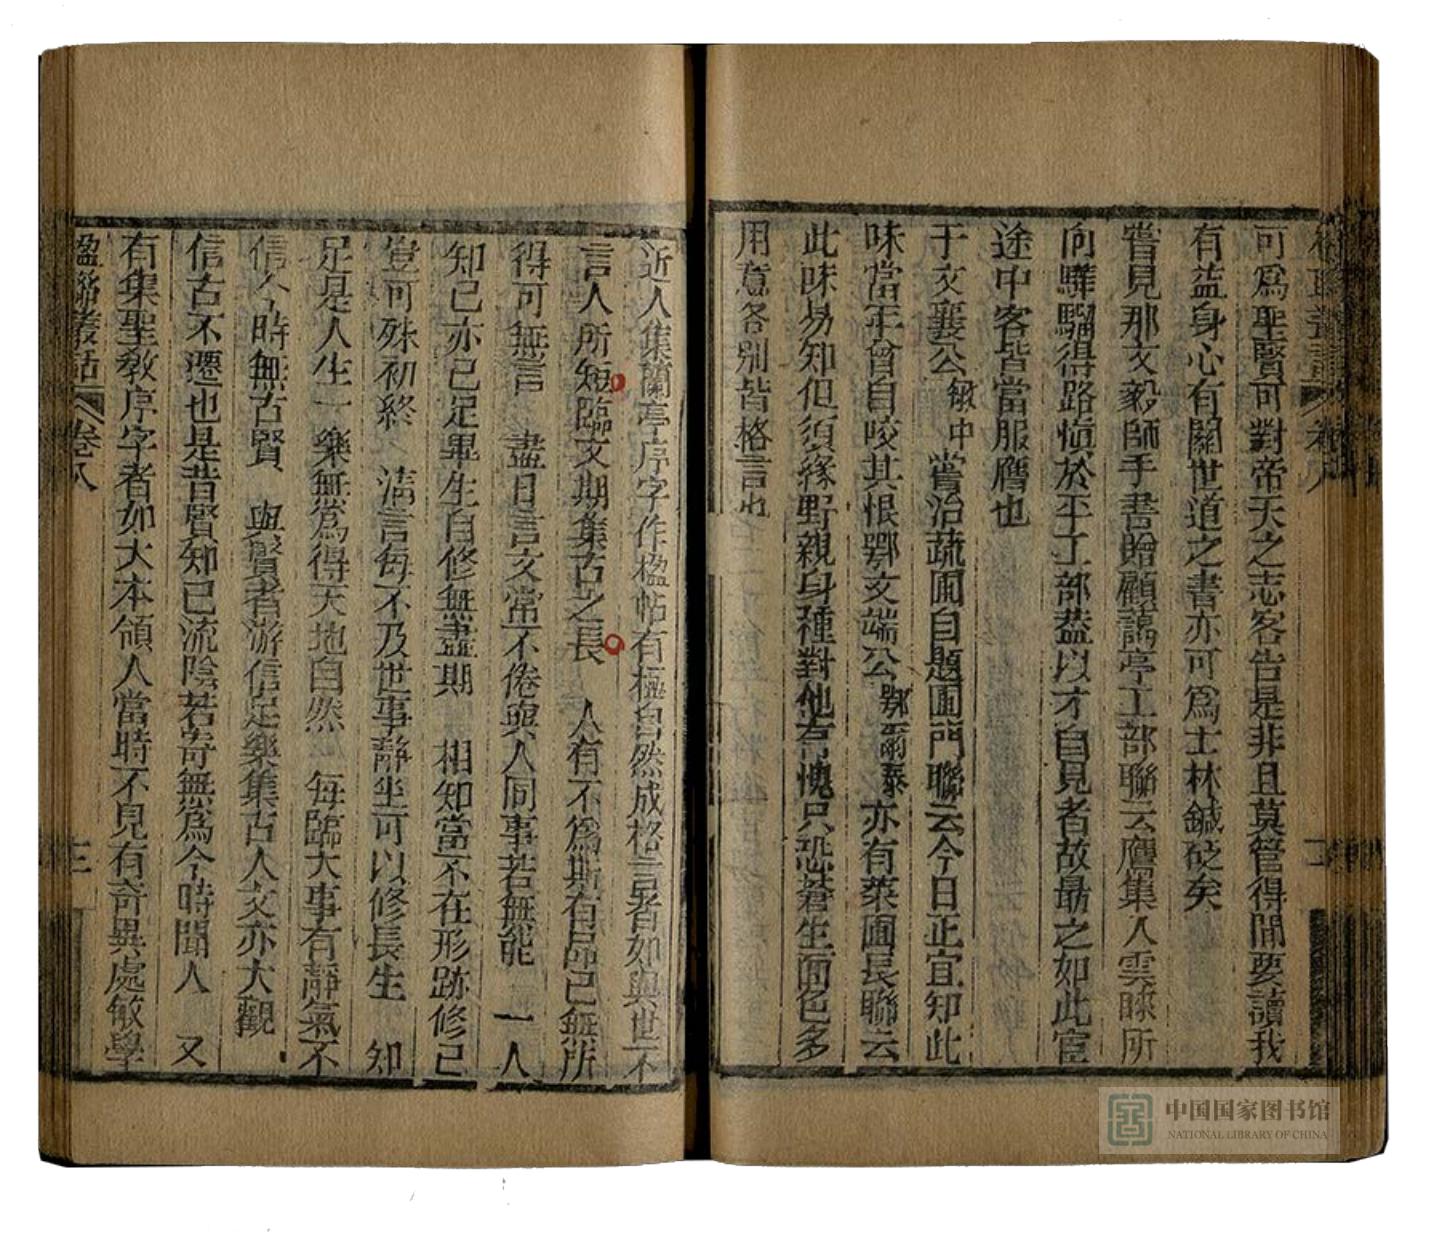 可爲聖賢可對帝天之志客告是非且莫管得閒要讀我
有益身心有關世道之書亦可爲士林鍼砭矣
嘗見那文毅師手書贈顧蒿亭工部聯云鷹集人雲睞所
向驊騮得路愼於平工部葢以才自見者故勗之如此宦
途中客皆當服膺也
于文襄公敏中嘗治蔬圃自題圃門聯云今日正宜知此
味當年曾自咬其根鄂文端公鄂爾泰亦有菜圃長聯云
此味易知但須緣野親身種對他有愧只恐蒼生面色多
用意各別皆格言也
近人集蘭亭序字作楹帖有極自然成格言者如與世不
言人所短臨文期集古之長 人有不爲斯有品己無所
得可無言 盡日言文常不倦與人同事若無能 一人
知己亦已足畢生自修無盡期 相知當不在形跡修己
豈可殊初終 清言每不及世事靜坐可以修長生 知
足是人生一樂無爲得天地自然 每臨大事有靜氣不
信今時無古賢 與賢者游信足樂集古人文亦大觀
信古不遷也是昔賢知己流陰若寄無爲今時閒人 又
有集聖敎序字者如大本領人當時不見有奇異處敏學
楹聯叢話 卷八 三
中国国家图书馆
NATIONAL LIBRARY OF CHINA